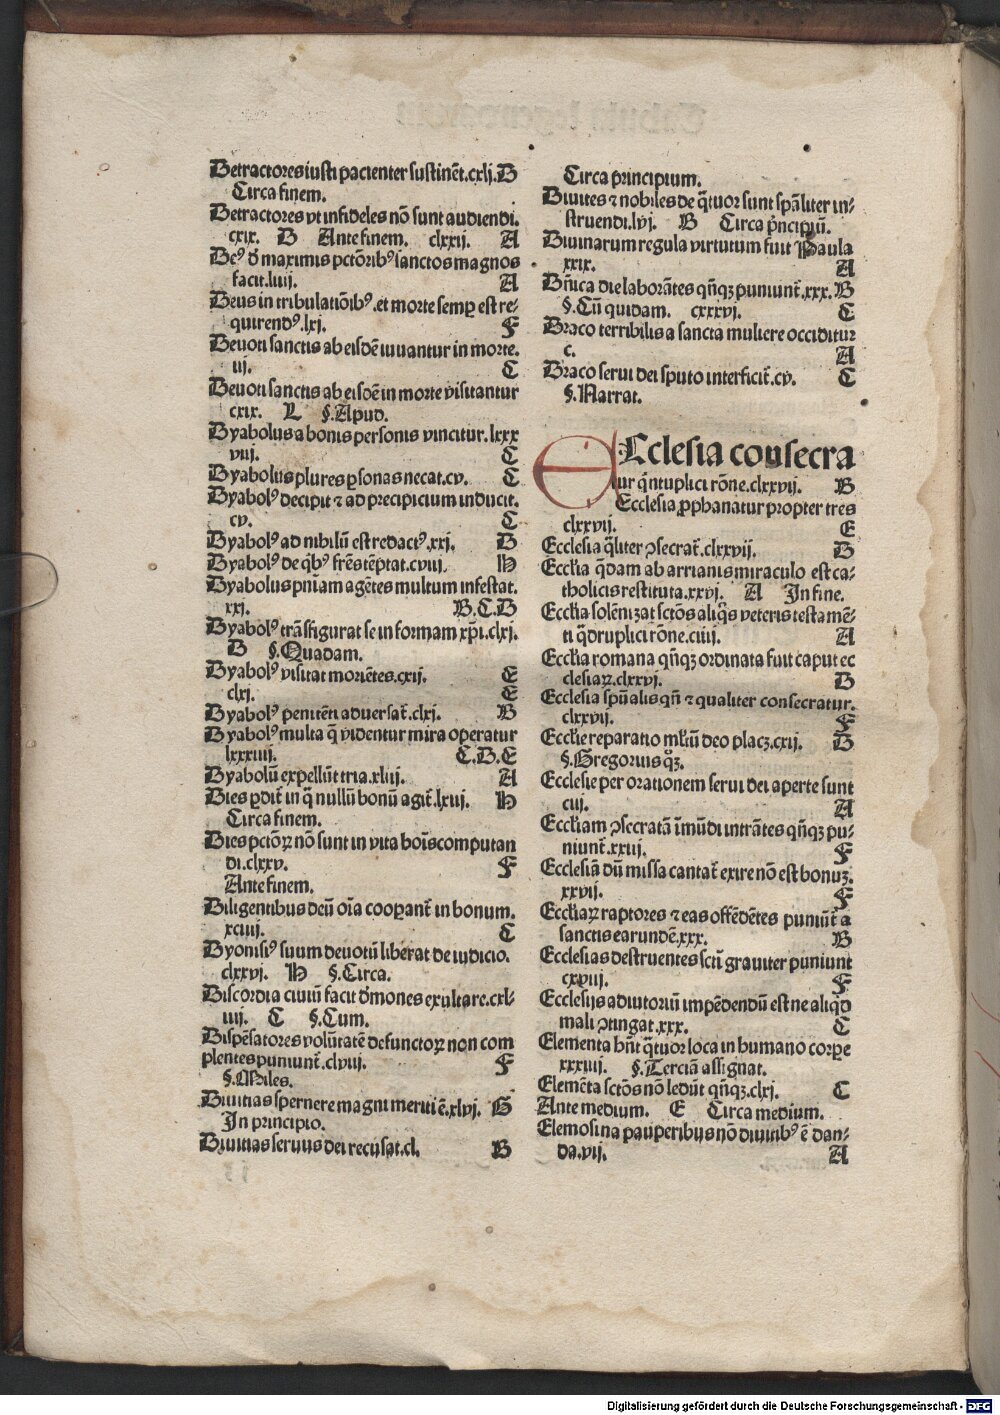 Detractores iusti pacienter sustinēt.cxlj. D
Circa finem.
Detractores vt infideles nō sunt audiendi.
cxix. D Ante finem. clxxij. A
Deꝰ d̄ maximis pctōribꝰ sanctos magnos
facit.liiij. A
Deus in tribulatiōibꝰ.et morte semꝑ est re-
quirendꝰ.lxj. F
Deuoti sanctis ab eisdē iuuantur in morte.
iij. C
Deuoti sanctis ab eisdē in morte visitantur
cxix. L §.Apud.
Dyabolus a bonis personis vincitur.lxxx
viij. C
Dyabolus plures ꝑsonas necat.cv. C
Dyabolꝰ decipit ⁊ ad precipicium inducit.
cv. C
Dyabolꝰ ad nihilū est redactꝰ.xxj. D
Dyabolꝰ de q̄bꝰ frēs tēptat.cviij. H
Dyabolus pniam agētes multum infestat.
xxj. B.C.D
Dyabolꝰ trāsfigurat se in formam xp̄i.clxj.
D §.Quadam.
Dyabolꝰ visitat moriētes.cxij. E
clxj. E
Dyabolꝰ penitēti aduersat̄.clxj. B
Dyabolꝰ multa q̄ videntur mira operatur
lxxxiiij. C.D.E
Dyabolū expellūt tria.xliij. A
Dies ꝑdit̄ in q̄ nullū bonū agit̄.lxiij. H
Circa finem.
Dies pctōꝝ nō sunt in vita hoīs computan
di.clxxv. F
Ante finem.
Diligentibus deū oīa cooꝑant̄ in bonum.
xciiij. C
Dyonisiꝰ suum deuotū liberat de iudicio.
clxxvj. H §.Circa.
Discordia ciuiū facit d̄mones exultare.cxl-
iiij. C §.Cum.
Dispēsatores volūtatē defunctoꝝ non com
plentes puniunt̄.clviij. F
§.Miles.
Diuitias spernere magni meriti ē.xlvj. G
In principio.
Diuitias seruus dei recusat.cl. B
Circa principium.
Diuites ⁊ nobiles de q̄tuor sunt spāliter in-
struendi.lvj. B Circa p̄ncipiū.
Diuinarum regula virtutum fuit Paula
xxix. A
Dn̄ica die laborātes qn̄qꝫ puniunt̄.xxx. B
§.Cū quidam. cxxxvj. C
Draco terribilis a sancta muliere occiditur
c. A
Draco serui dei sputo interficit̄.cv. C
§.Narrat.
ECclesia consecra
tur q̄ntuplici rōne.clxxvij. B
Ecclesia ꝓphanatur propter tres
clxxvij. E
Ecclesia q̄liter ꝯsecrat̄.clxxvij. D
Eccłia q̄dam ab arrianis miraculo est ca-
tholicis restituta.xxvj. A In fine.
Eccłia solēnizat sctōs aliq̄s veteris testamē-
ti q̄druplici rōne.ciiij. A
Eccłia romana qn̄qꝫ ordinata fuit caput ec
clesiaꝝ.clxxvj. D
Ecclesia spūalis qn̄ ⁊ qualiter consecratur.
clxxvij. F
Eccłie reparatio mltū deo placꝫ.cxij. D
§.Gregorius q̄ꝫ.
Ecclesie per orationem serui dei aperte sunt
ciij. A
Eccłiam ꝯsecratā īmūdi intrātes qn̄qꝫ pu-
niunt̄.xxiij. F
Ecclesiā dū missa cantat̄ exire nō est bonuꝫ.
xxvij. F
Eccłiaꝝ raptores ⁊ eas offēdētes puniūt̄ a
sanctis earundē.xxx. B
Ecclesias destruentes scti grauiter puniunt
cxviij. F
Ecclesijs adiutoriū impēdendū est ne aliq̄d
mali ꝯtingat.xxx. C
Elementa hn̄t q̄tuor loca in humano corꝑe
xxxiiij. §.Terciā assignat.
Elemēta sctōs nō ledūt qn̄qꝫ.clxj. C
Ante medium. E Circa medium.
Elemosina pauperibus nō diuitibꝰ ē dan-
da.vij. A
Digitalisierung gefördert durch die Deutsche Forschungsgemeinschaft - DFG